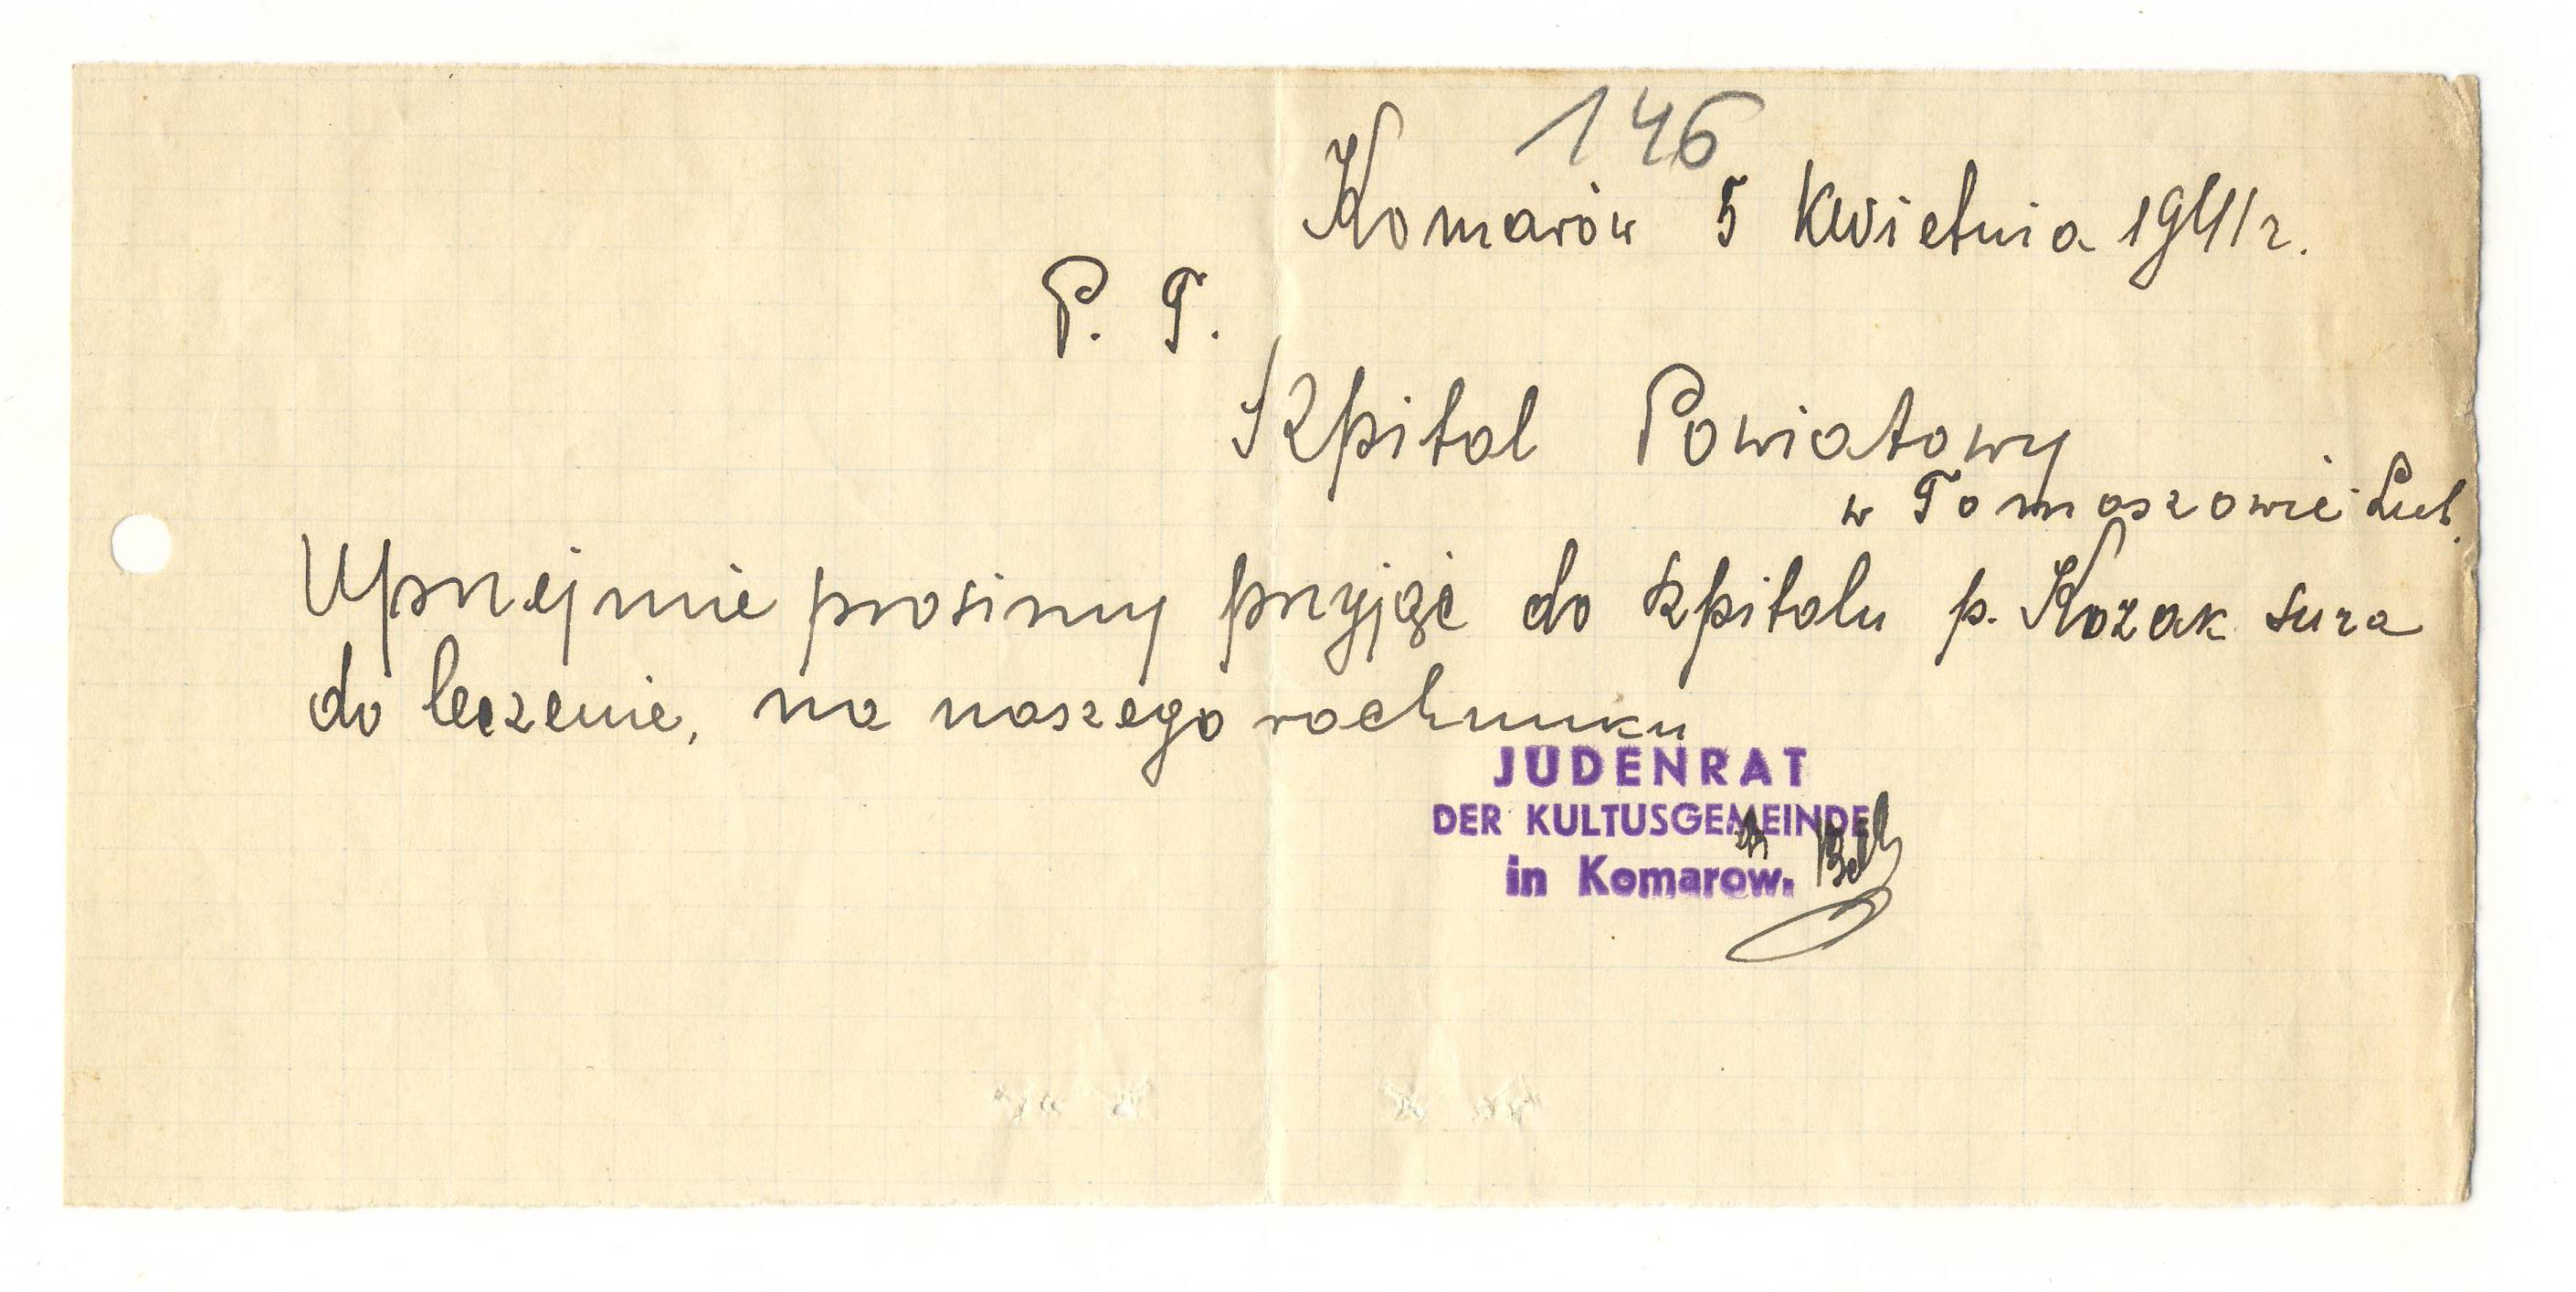 146
Komarów 5 Kwietnia 1941 r.
P. T.
Szpital Powiatowy
w Tomaszowie Lub.
Upnejmie prosimy pnyjąć do szpitalu p. Kozak Sura
do leczenie, na naszego rachunku
JUDENRAT
DER KULTUSGEMEINDE
in Komarow.